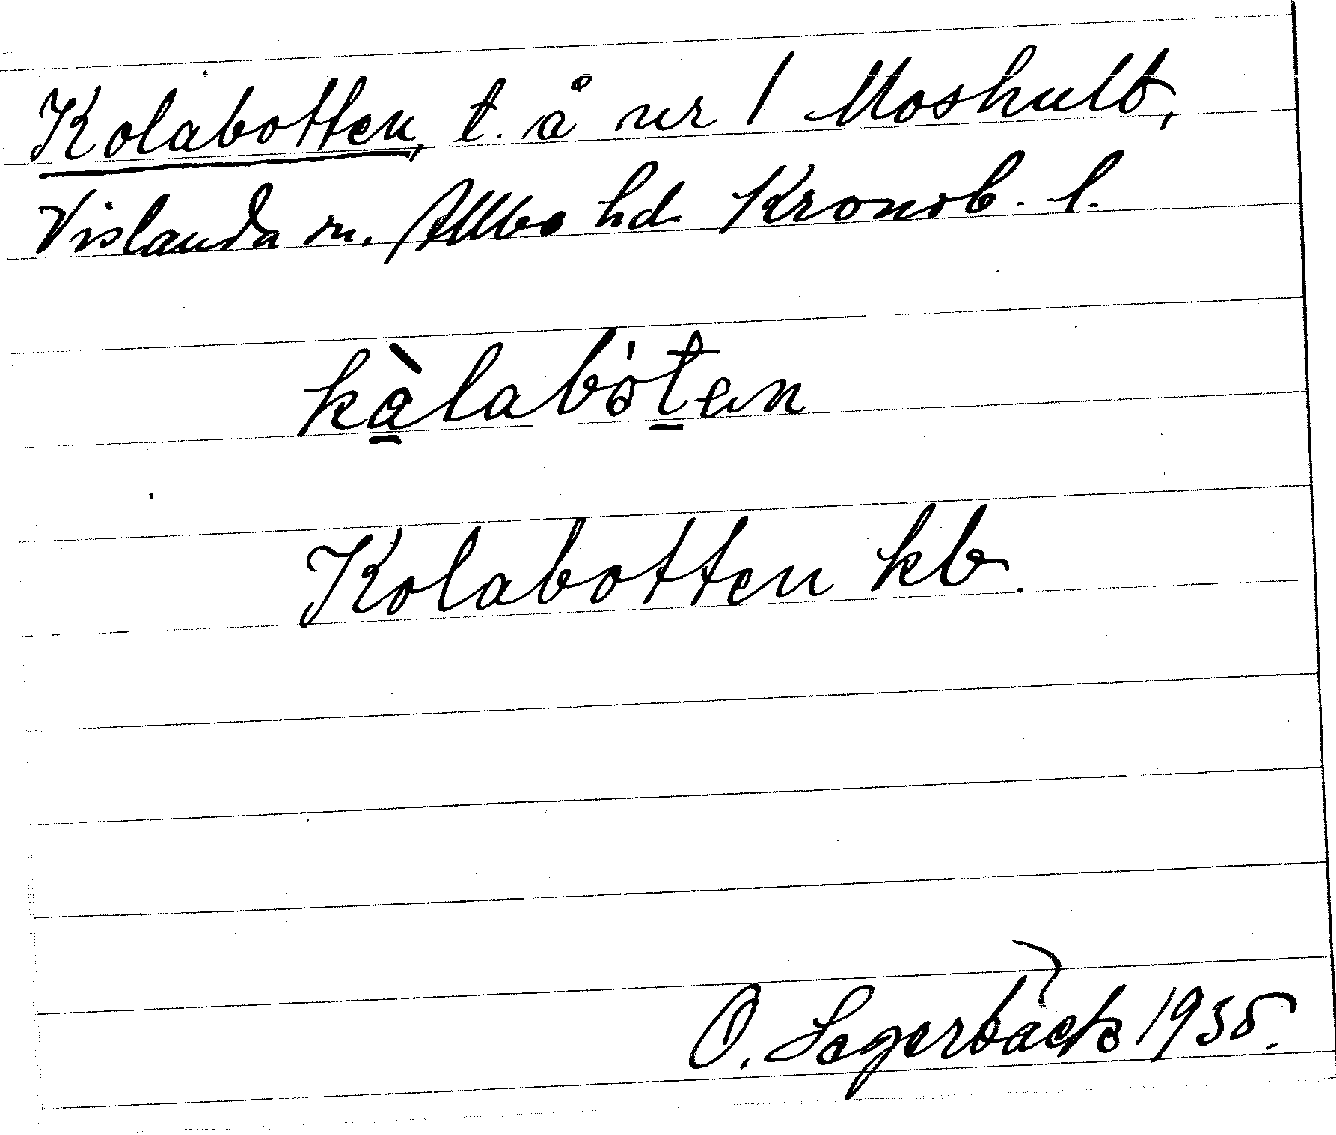 Kolabotten, t. å nr 1 Moshult,
Vislanda sn. Allbo hd Kronob. l.
kàlabo̍ten
Kolabotten kb.
O. Lagerbäck 1935.